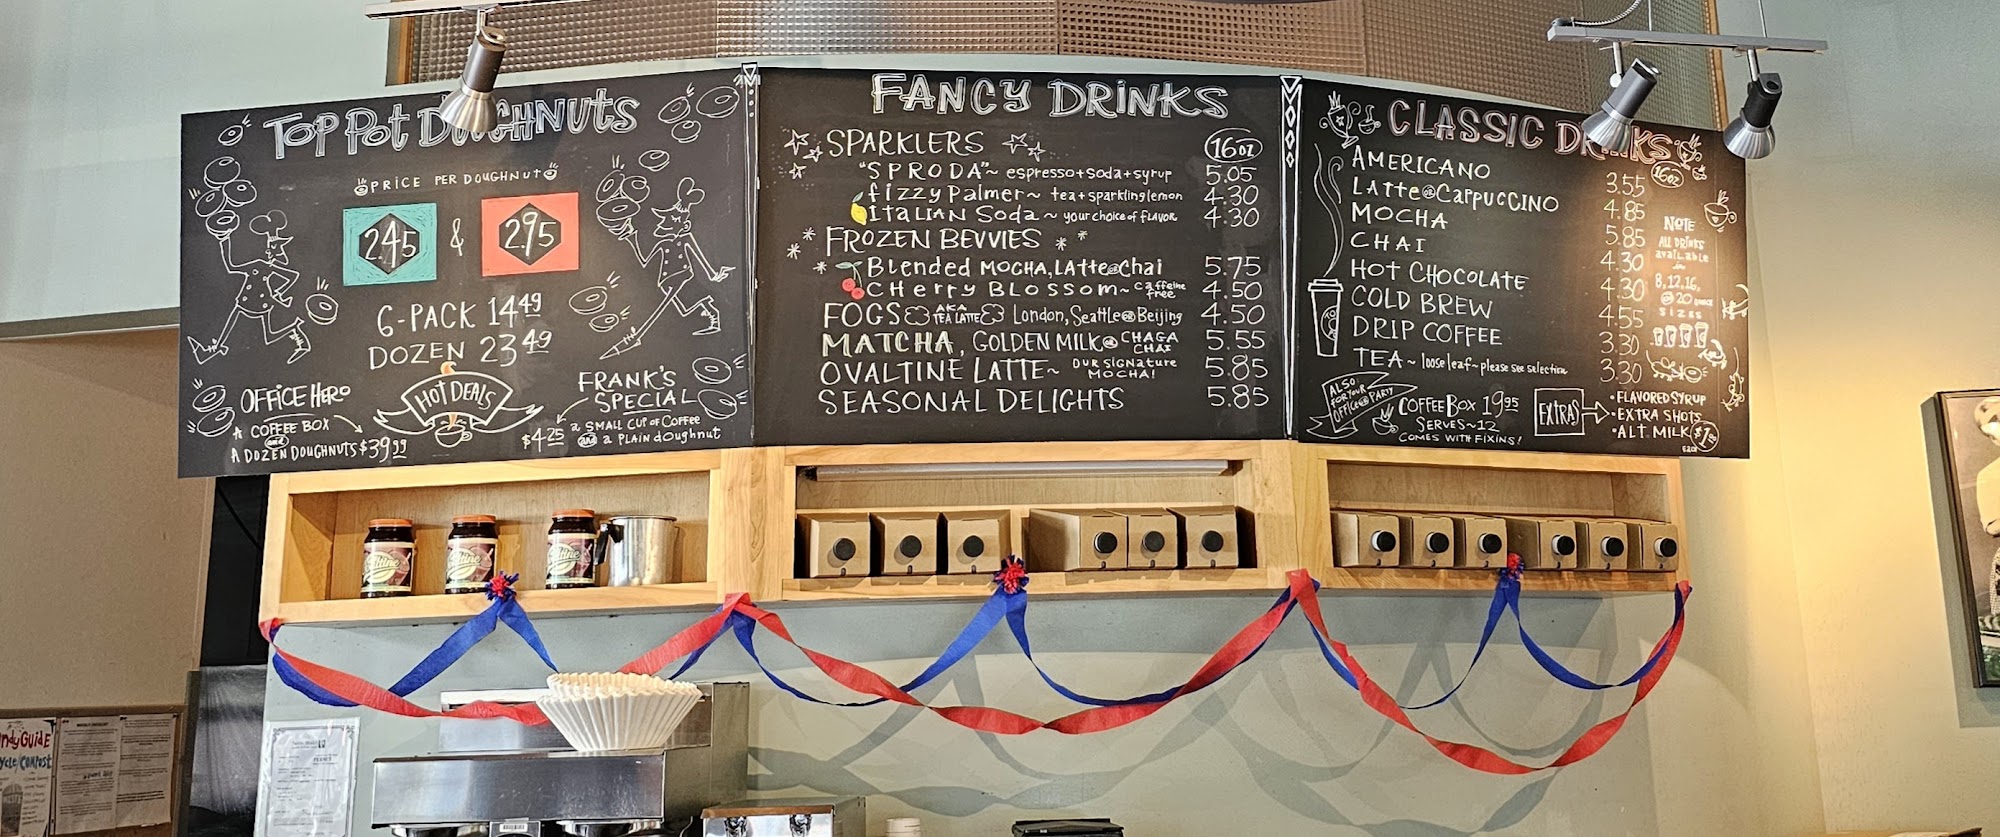 TOP POT DOUGHNUTS
PRICE PER DOUGHNUT
2.45 & 2.95
6-PACK 14.49
DOZEN 23.49
HOT DEALS
OFFICE HERO
A COFFEE BOX
and
A DOZEN DOUGHNUTS $39.99
FRANK'S
SPECIAL
$4.25
a SMALL CUP of COFFEE
and a PLAIN doughnut
FANCY DRINKS
SPARKLERS 16oz
"SPRODA"~ espresso+soda+syrup 5.05
fizzy Palmer~ tea+sparkling lemon 4.30
ITALIAN Soda~ your choice of FLAVOR 4.30
FROZEN BEVVIES
Blended MOCHA, LAtte or Chai 5.75
CHerry BLOSSOM~ caffeine free 4.50
FOGS AKA TEA LATTE London, Seattle or Beijing 4.50
MATCHA, GOLDEN MILK or CHAGA CHAI 5.55
OVALTINE LATTE~ OUR SIGNATURE MOCHA! 5.85
SEASONAL DELIGHTS 5.85
CLASSIC DRINKS
16oz
AMERICANO 3.55
LAtte or CAPPUCCINO 4.85
MOCHA 5.85
CHAI 4.30
HOT CHOCOLATE 4.30
COLD BREW 4.55
DRIP COFFEE 3.30
TEA~ loose leaf~please see selection 3.30
NOTE
ALL DRINKS
available
in
8, 12, 16,
or 20 ounce
SIZES
ALSO
FOR YOUR
OFFICE or PARTY
COFFEE BOX 19.95
SERVES~12
COMES WITH FIXINS!
EXTRAS
•FLAVORED SYRUP
•EXTRA SHOTS
•ALT MILK $1.00
each
ndy GUIDE
ycle/COMPOST